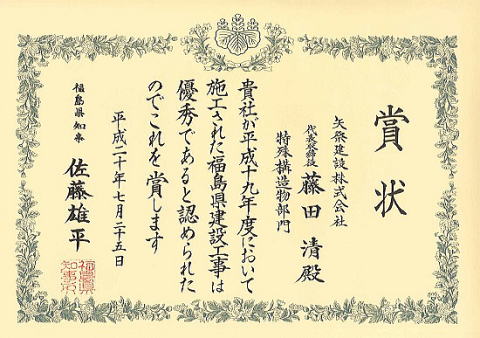 賞状
矢祭建設株式会社
代表取締役 藤田 清殿
特殊構造物部門
貴社が平成十九年度において
施工された福島県建設工事は
優秀であると認められた
のでこれを賞します
平成二十年七月二十五日
福島県知事 佐藤雄平
福島県
知事之印